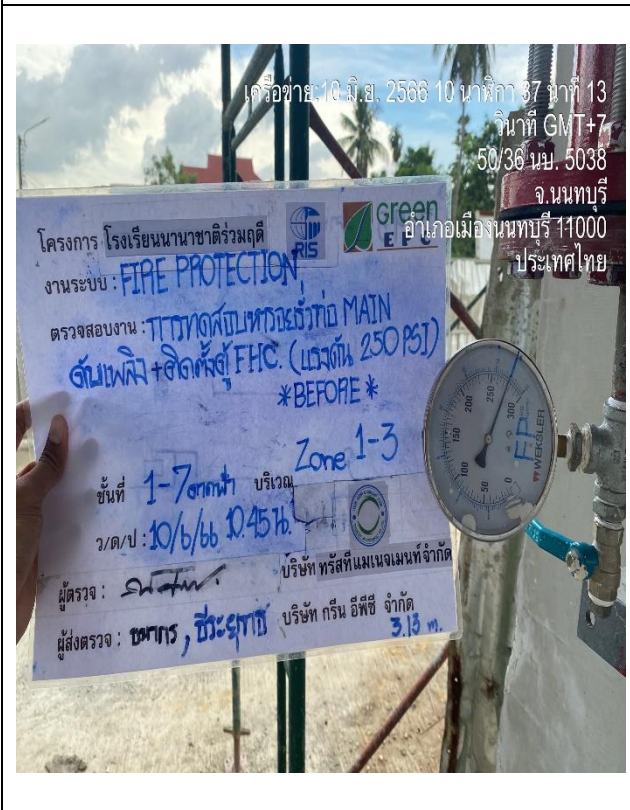 เครือข่าย:10 มิ.ย. 2566 10 นาฬิกา 37 นาที 13
วินาที GMT+7
50/36 นบ. 5038
จ.นนทบุรี
อำเภอเมืองนนทบุรี 11000
ประเทศไทย
โครงการ โรงเรียนนานาชาติร่วมฤดี
RIS
Green
EPC
งานระบบ : FIRE PROTECTION
ตรวจสอบงาน : การทดสอบหารอยรั่วท่อ MAIN
ดับเพลิง + ติดตั้งตู้ FHC. (แรงดัน 250 PSI)
*BEFORE*
ชั้นที่ 1-7 ดาดฟ้า บริเวณ Zone 1-3
ว/ด/ป : 10/6/66 10.45 น.
ผู้ตรวจ :
บริษัท ทรัสท์แมเนจเมนท์จำกัด
ผู้ส่งตรวจ : ธนากร, ธีระยุทธ์ บริษัท กรีน อีพีซี จำกัด
3.13 m.
0
50
100
150
200
250
300
FP
WEKSLER